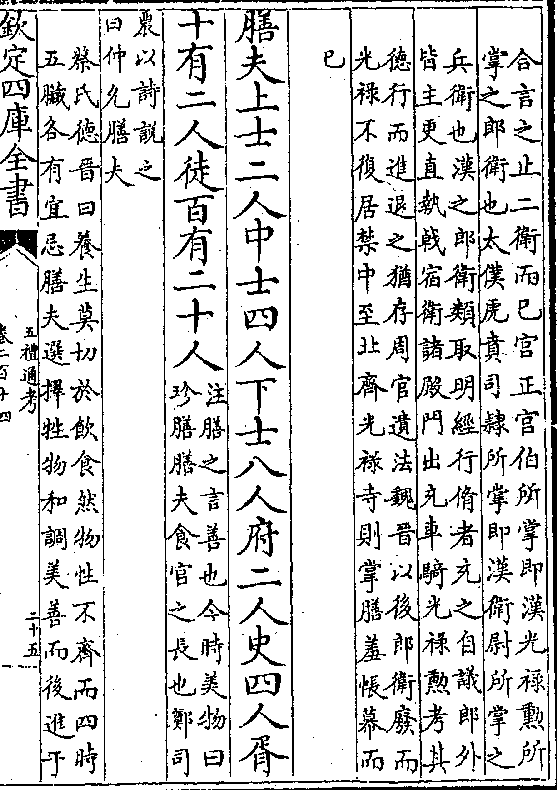 合言之止二衛而已宫正宫伯所掌即漢光祿勲所
掌之郎衛也太僕虎賁司隷所掌即漢衛尉所掌之
兵衛也漢之郎衛類取明經行脩者充之自議郎外
皆主更直執㦸宿衛諸殿門出充車騎光祿勲考其
德行而進退之猶存周官遺法魏晉以後郎衛廢而
光祿不復居禁中至北齊光祿寺則掌膳羞帳幕而
已
膳夫上士二人中士四人下士八人府二人史四人胥
十有二人徒百有二十人
注膳之言善也今時美物曰
珍膳膳夫食官之長也鄭司
農以詩說之
曰仲允膳夫
蔡氏德晉曰養生莫切於飲食然物性不齊而四時
五臟各有宜忌膳夫選擇牲物和調美善而後進于
欽定四庫全書
五禮通考
卷二百十四
二十五